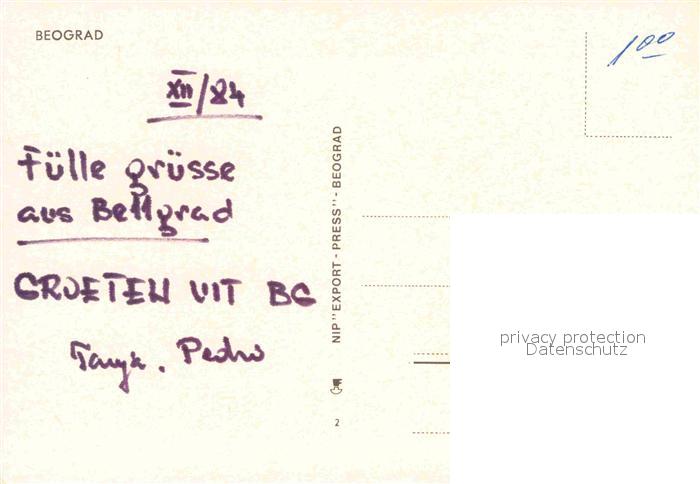 BEOGRAD
XII/84
Fülle grüsse
aus Bellgrad
GROETEN UIT BG
Tanya. Pedro
NIP "EXPORT - PRESS" - BEOGRAD
2
1 00
privacy protection
Datenschutz